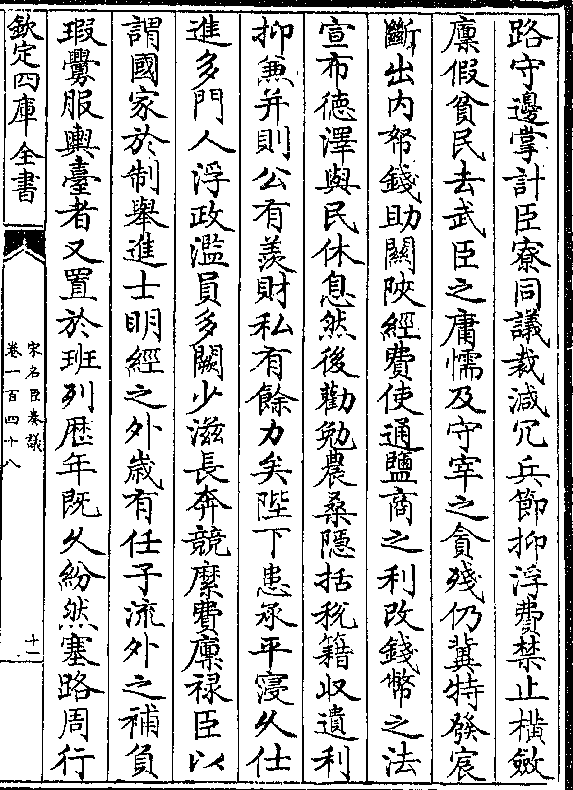 路守邊掌計臣寮同議裁減冗兵節抑浮費禁止橫斂
廪假貧民去武臣之庸懦及守宰之貪殘仍冀特發宸
斷出内帑錢助關陜經費使通鹽商之利改錢幣之法
宣布德澤與民休息然後勸勉農桑隱括税籍收遺利
抑兼并則公有羡財私有餘力矣陛下患承平寖久仕
進多門人浮政濫員多闕少滋長奔競縻費廪禄臣以
謂國家於制舉進士明經之外歲有任子流外之補負
瑕釁服輿臺者又置於班列歴年既久紛然塞路周行
欽定四庫全書
宋名臣奏議
卷一百四十八
十一